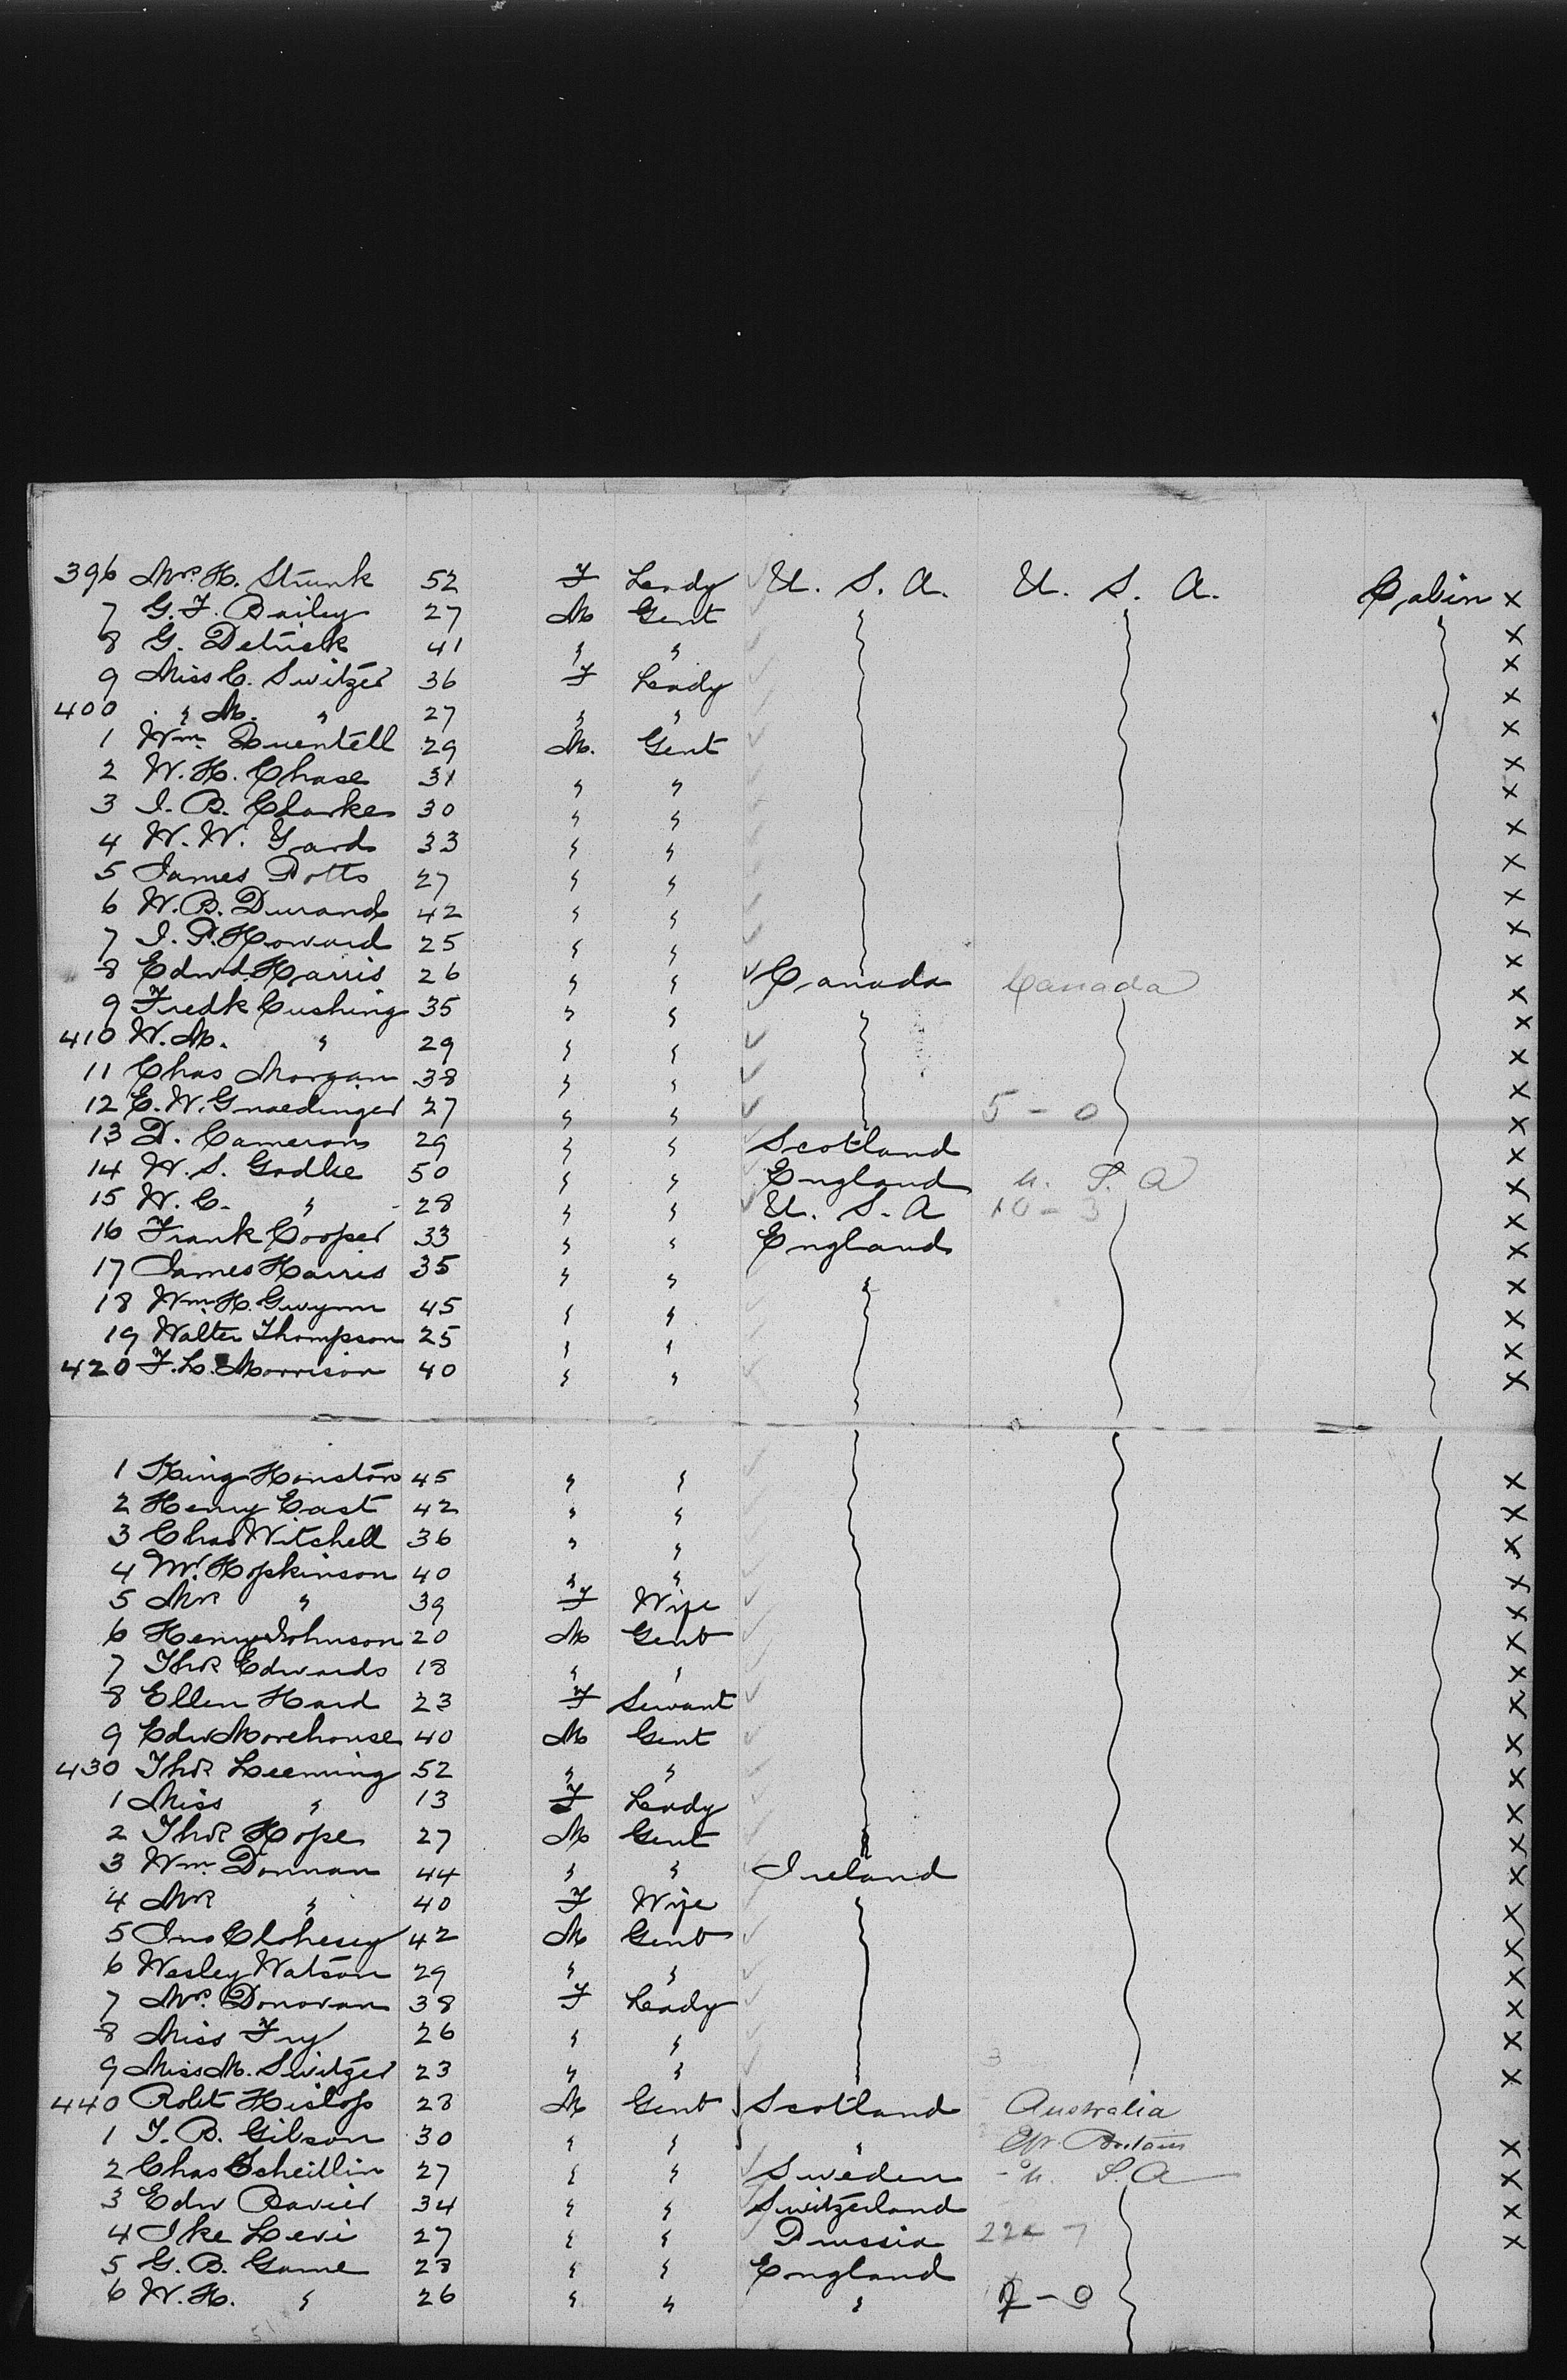 396 Mrs H. Strunk 52 F Lady U. S. A. U. S. A. Cabin x
7 G. F. Bailey 27 M Gent x
8 G. Detrick 41 " " x
9 Miss C. Switzer 36 F Lady x
400 " M. " 27 " " x
1 Wm Quentell 29 M. Gent x
2 W. H. Chase 31 " " x
3 I. B. Clarke 30 " " x
4 W. W. Yard 33 " " x
5 James Potts 27 " " x
6 W. B. Durand 42 " " x
7 I. P. Howard 25 " " x
8 Edwd Harris 26 " " Canada Canada x
9 Fredk Cushing 35 " " x
410 W. M. " 29 " " x
11 Chas Morgan 38 " " x
12 E. W. Gnaedinger 27 " " 5 - 0 x
13 D. Cameron 29 " " Scotland x
14 W. S. Godbe 50 " " England U. S. A x
15 W. C. " 28 " " U. S. A 10 - 3 x
16 Frank Cooper 33 " " England x
17 James Harris 35 " " " x
18 Wm H. Gwynn 45 " " x
19 Walter Thompson 25 " " x
420 F. L. Morrison 40 " " x
1 King Houston 45 " " x
2 Henry East 42 " " x
3 Chas Witchell 36 " " x
4 Mr Hopkinson 40 " " x
5 Mrs " 39 F Wife x
6 Henry Johnson 20 M Gent x
7 Thos Edwards 18 " " x
8 Ellen Hard 23 F Servant x
9 Edw Morehouse 40 M Gent x
430 Thos Leeming 52 " " x
1 Miss " 13 F Lady x
2 Thos Hope 27 M Gent x
3 Wm Donnan 44 " " Ireland x
4 Mrs " 40 F Wife x
5 Jno Clohesey 42 M Gent x
6 Wesley Watson 29 " " x
7 Mrs Donovan 38 F Lady x
8 Miss Fry 26 " " x
9 Miss M. Switzer 23 " " 3 x
440 Robt Hislop 28 M Gent Scotland Australia
1 T. B. Gibson 30 " " " Gt Britain x
2 Chas Scheitlin 27 " " Sweden U. S. A x
3 Edw Bavier 34 " " Switzerland x
4 Ike Levi 27 " " Prussia 22 - 7 x
5 G. B. Game 28 " " England
6 W. H. " 26 " " " 2 - 0